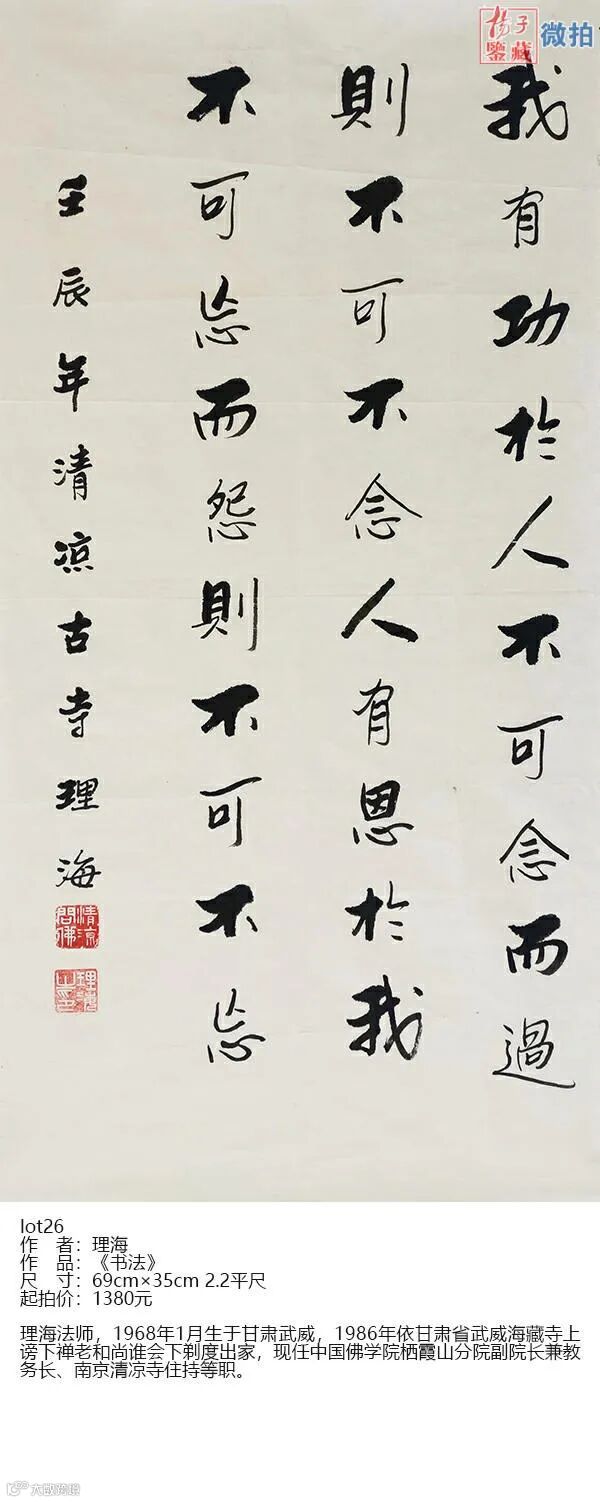 揚子
鑒藏
微拍
我有功於人不可念而過
則不可不念人有恩於我
不可忘而怨則不可不忘
壬辰年清凉古寺理海
lot26
作 者：理海
作 品：《书法》
尺 寸：69cm×35cm 2.2平尺
起拍价：1380元
理海法师，1968年1月生于甘肃武威，1986年依甘肃省武威海藏寺上
谤下禅老和尚谁会下剃度出家，现任中国佛学院栖霞山分院副院长兼教
务长、南京清凉寺住持等职。